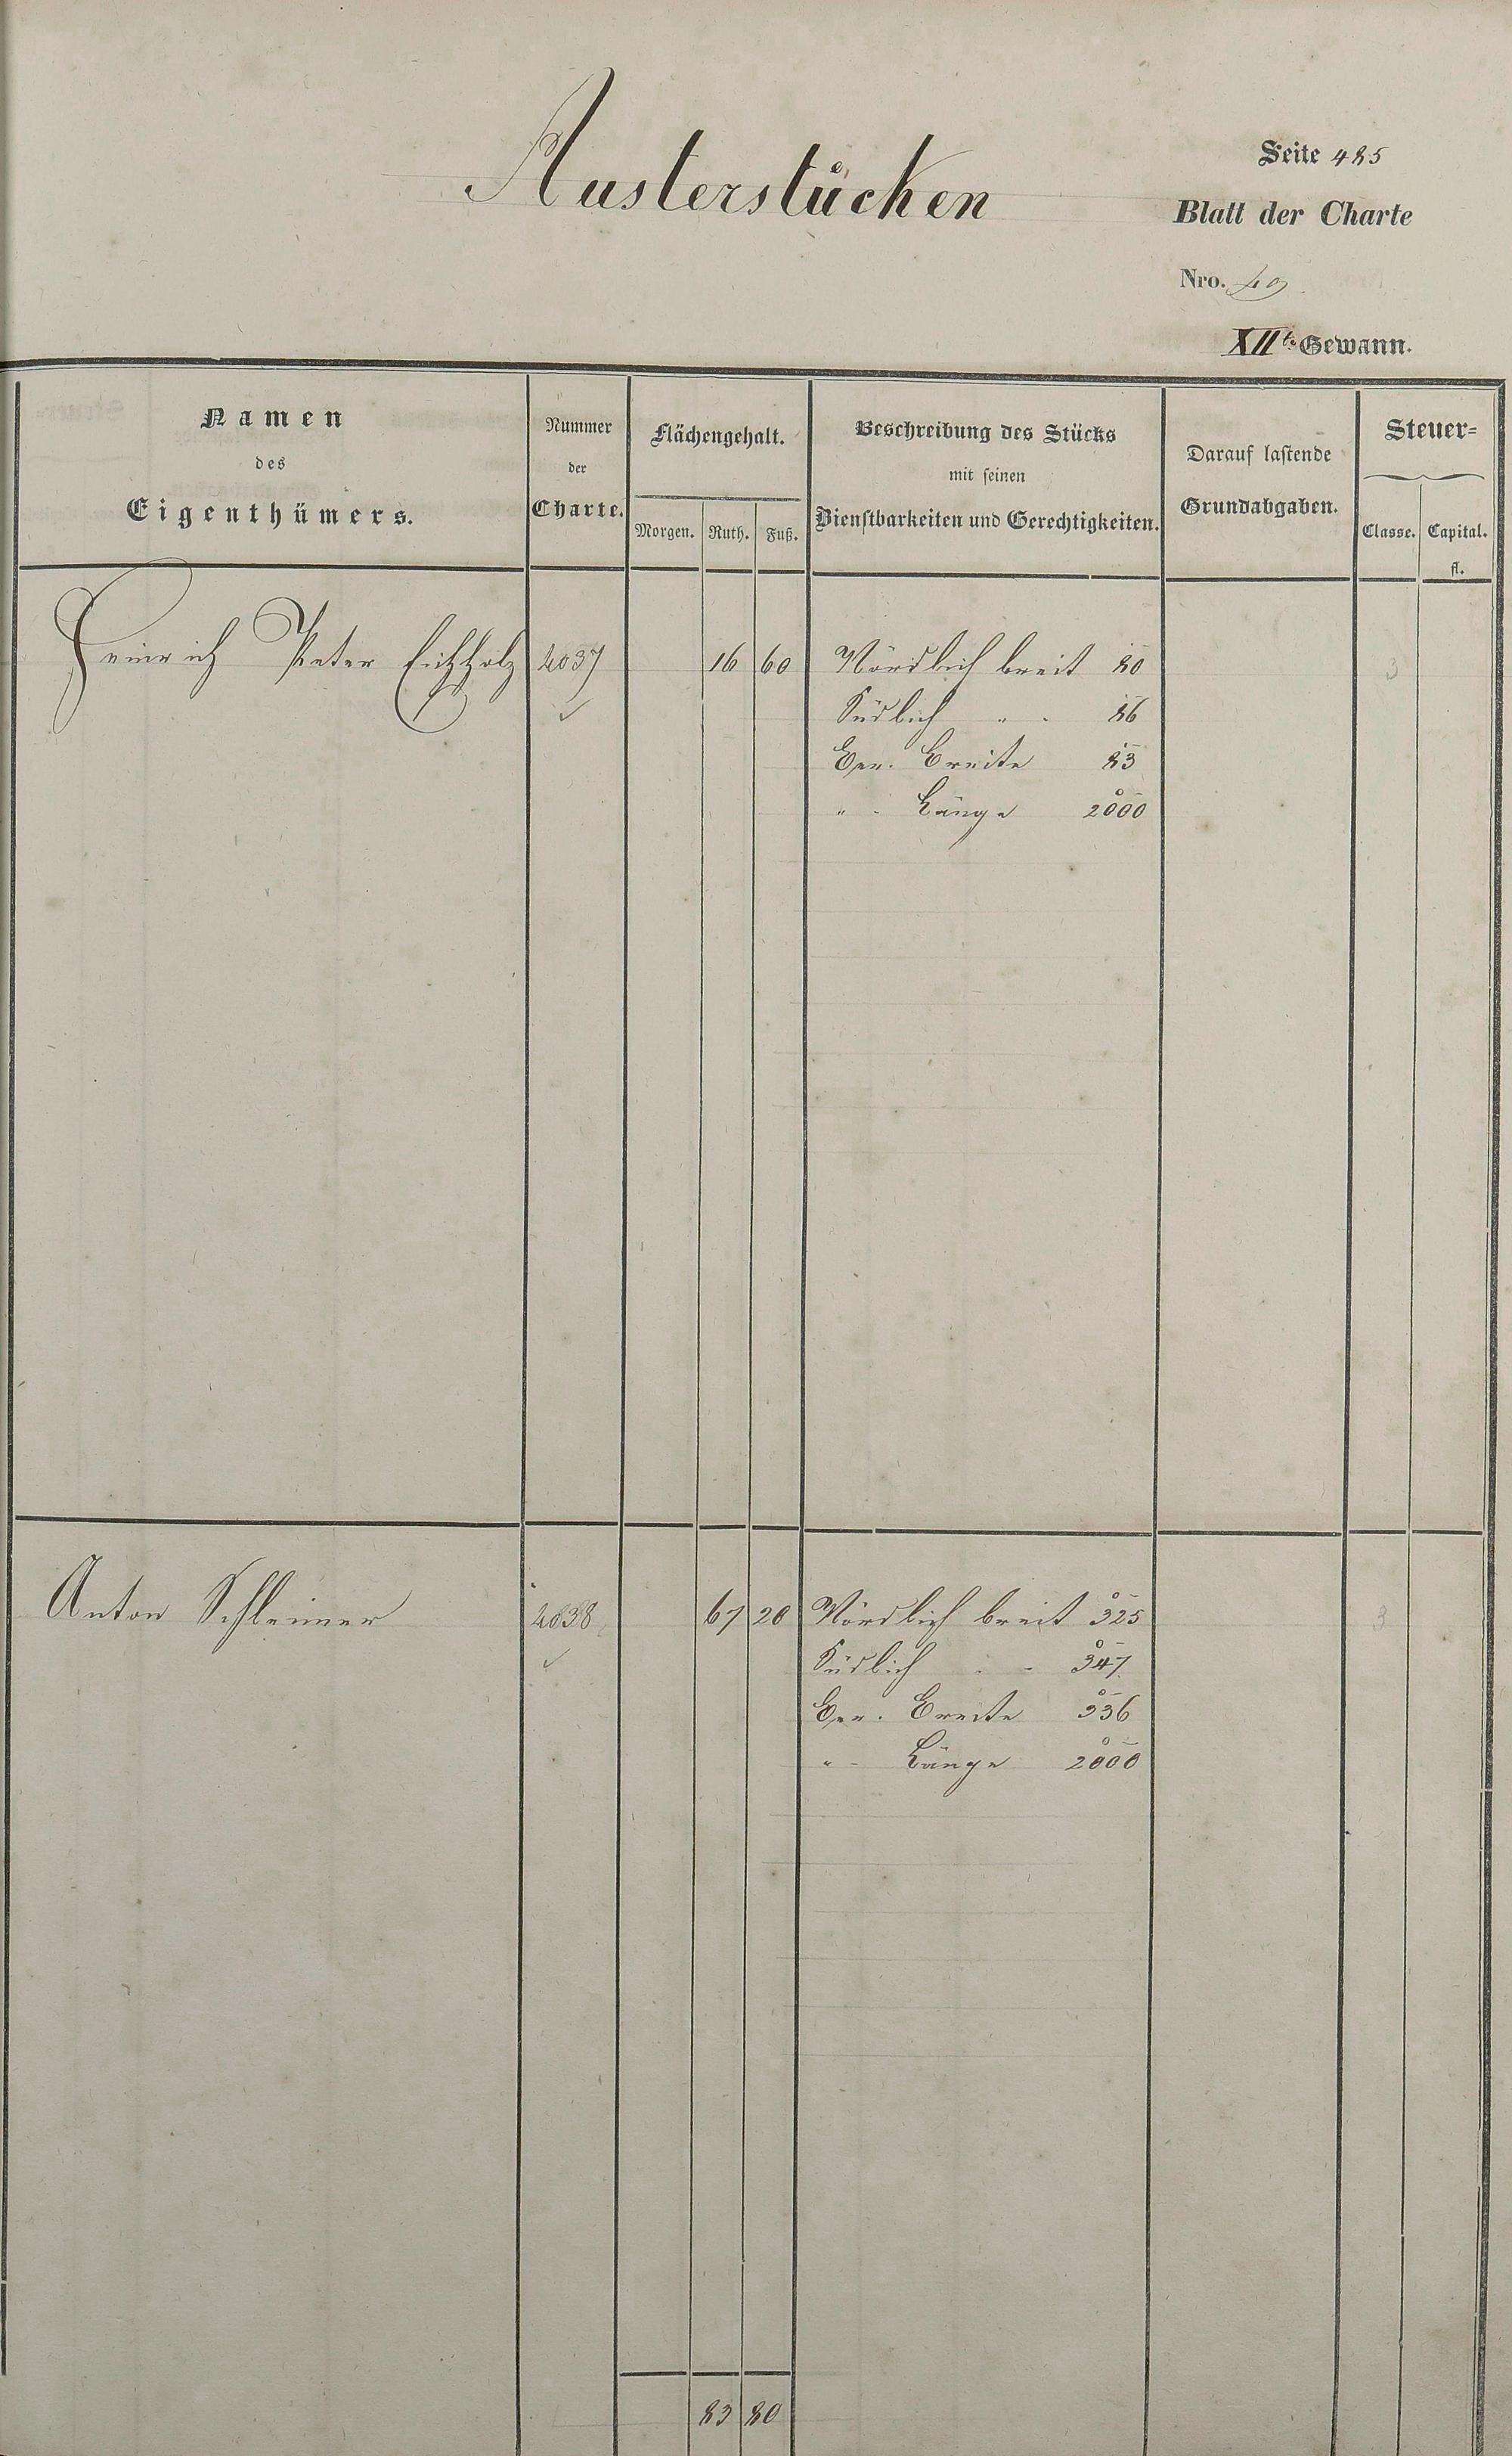 Austerstücken
Seite 485
Blatt der Charte
Nro. 40
XIIte Gewann.
Namen
des
Eigenthümers.
Nummer
der
Charte.
Flächengehalt.
Morgen. Ruth. Fuß.
Beschreibung des Stücks
mit seinen
Dienstbarkeiten und Gerechtigkeiten.
Darauf lastende
Grundabgaben.
Steuer=
Classe. Capital.
fl.
Heinrich Peter Eichholz 4037 16 60 Nördlich breit 80 3
Südlich " " 86
Ger. Breite 83
" " Länge 2000
Anton Schleimer 4038 67 20 Nördlich breit 325 3
Südlich " " 347
Ger. Breite 336
" " Länge 2000
83 80